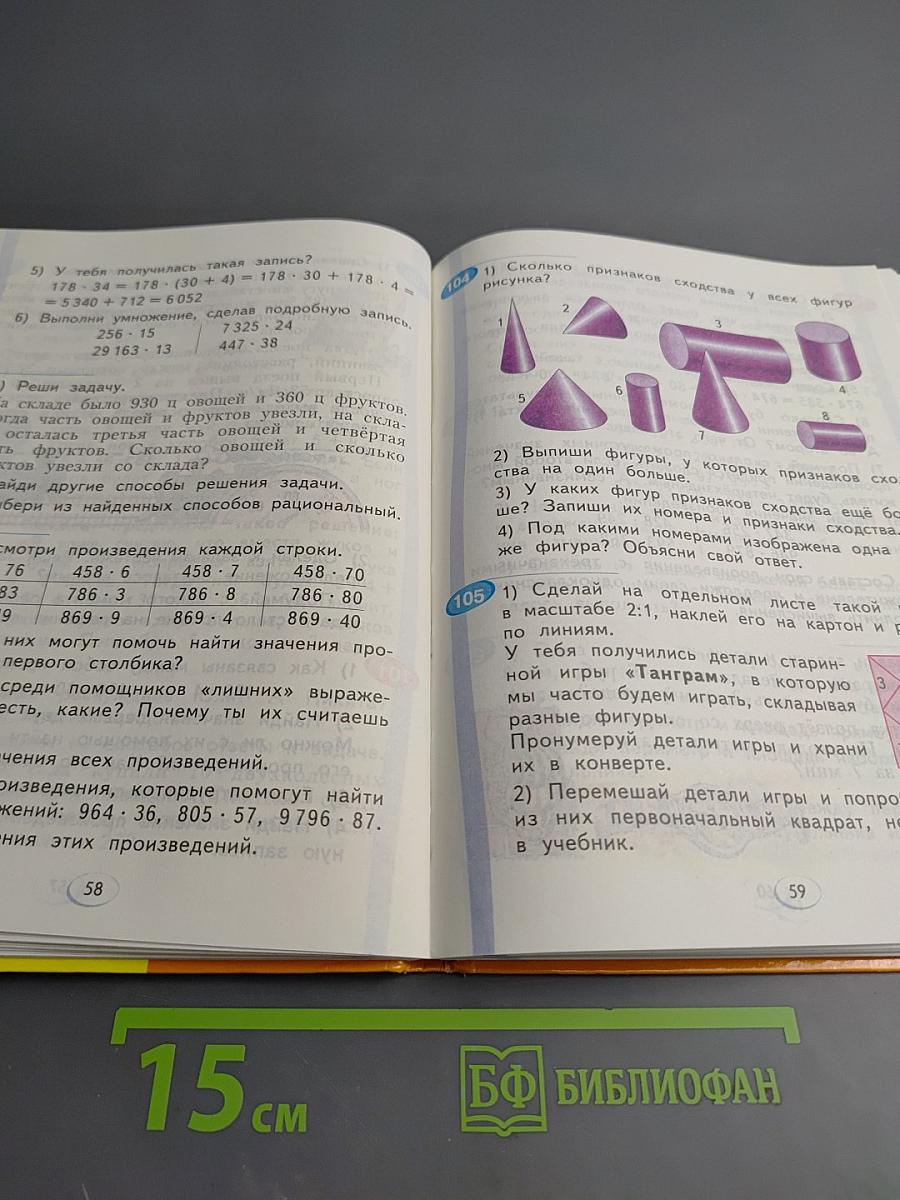 5) У тебя получилась такая запись?
178 · 34 = 178 · (30 + 4) = 178 · 30 + 178 · 4 =
= 5 340 + 712 = 6 052
6) Выполни умножение, сделав подробную запись.
256 · 15 7 325 · 24
29 163 · 13 447 · 38
) Реши задачу.
а складе было 930 ц овощей и 360 ц фруктов.
огда часть овощей и фруктов увезли, на скла-
осталась третья часть овощей и четвёртая
ть фруктов. Сколько овощей и сколько
ктов увезли со склада?
айди другие способы решения задачи.
бери из найденных способов рациональный.
смотри произведения каждой строки.
76 458 · 6 458 · 7 458 · 70
83 786 · 3 786 · 8 786 · 80
9 869 · 9 869 · 4 869 · 40
них могут помочь найти значения про-
первого столбика?
среди помощников «лишних» выраже-
есть, какие? Почему ты их считаешь
чения всех произведений.
оизведения, которые помогут найти
жений: 964 · 36, 805 · 57, 9 796 · 87.
ения этих произведений.
58
104 1) Сколько признаков сходства у всех фигур
рисунка?
1 2 3 4
5 6 7 8
2) Выпиши фигуры, у которых признаков схо
ства на один больше.
3) У каких фигур признаков сходства ещё бо
ше? Запиши их номера и признаки сходства.
4) Под какими номерами изображена одна
же фигура? Объясни свой ответ.
105 1) Сделай на отдельном листе такой
в масштабе 2:1, наклей его на картон и р
по линиям.
У тебя получились детали старин-
ной игры «Танграм», в которую
мы часто будем играть, складывая
разные фигуры.
Пронумеруй детали игры и храни
их в конверте.
3
2) Перемешай детали игры и попро
из них первоначальный квадрат, не
в учебник.
59
15 см
БФ БИБЛИОФАН